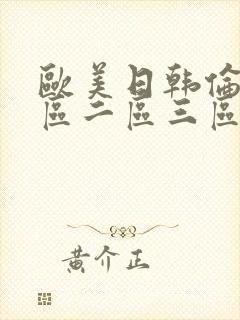 歐美日韩倫
區二區三區
黄介正